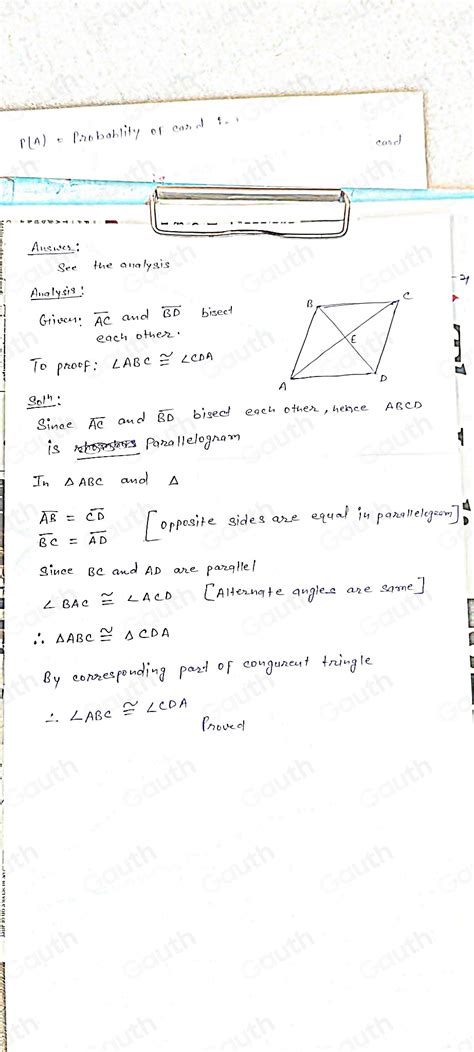 P(A) = Probahlity of card 1.
card
Answer:
See the analysis
Analysis:
Given: AC and BD bisect
each other.
To proof: ∠ABC ≅ ∠CDA
B
C
E
A
D
Solⁿ:
Since AC and BD bised each other, hence ABCD
is Parallelogram
In △ABC and △
AB = CD
BC = AD
[opposite sides are equal in parallelogram]
Since BC and AD are parallel
∠BAC ≅ ∠ACD [Alternate angles are same]
∴ △ABC ≅ △CDA
By corresponding part of conguruent tringle
∴ ∠ABC ≅ ∠CDA
Proved
Gauth